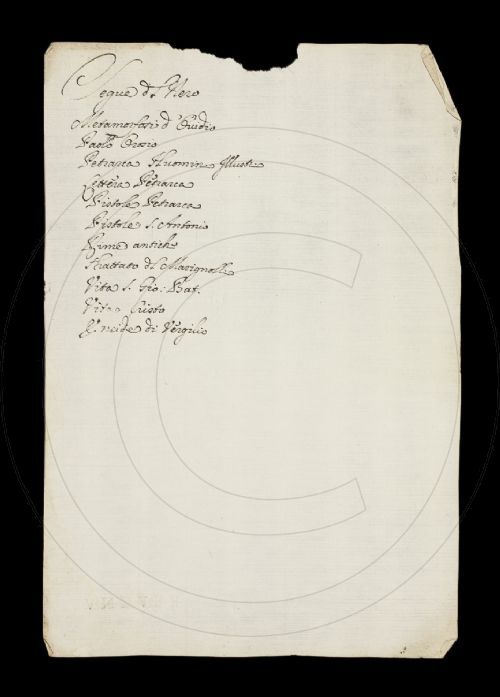 Segue del Nero
Metamorfosi d'Ouidio
Paolo Orosio
Petrarca Huomin Illustri
Lettera Petrarca
Pistole Petrarca
Pistole S. Antonio
Rime antiche
Trattato del
Vita S. Gio: Bat.
Vita Cristo
Eneide di Vergilio